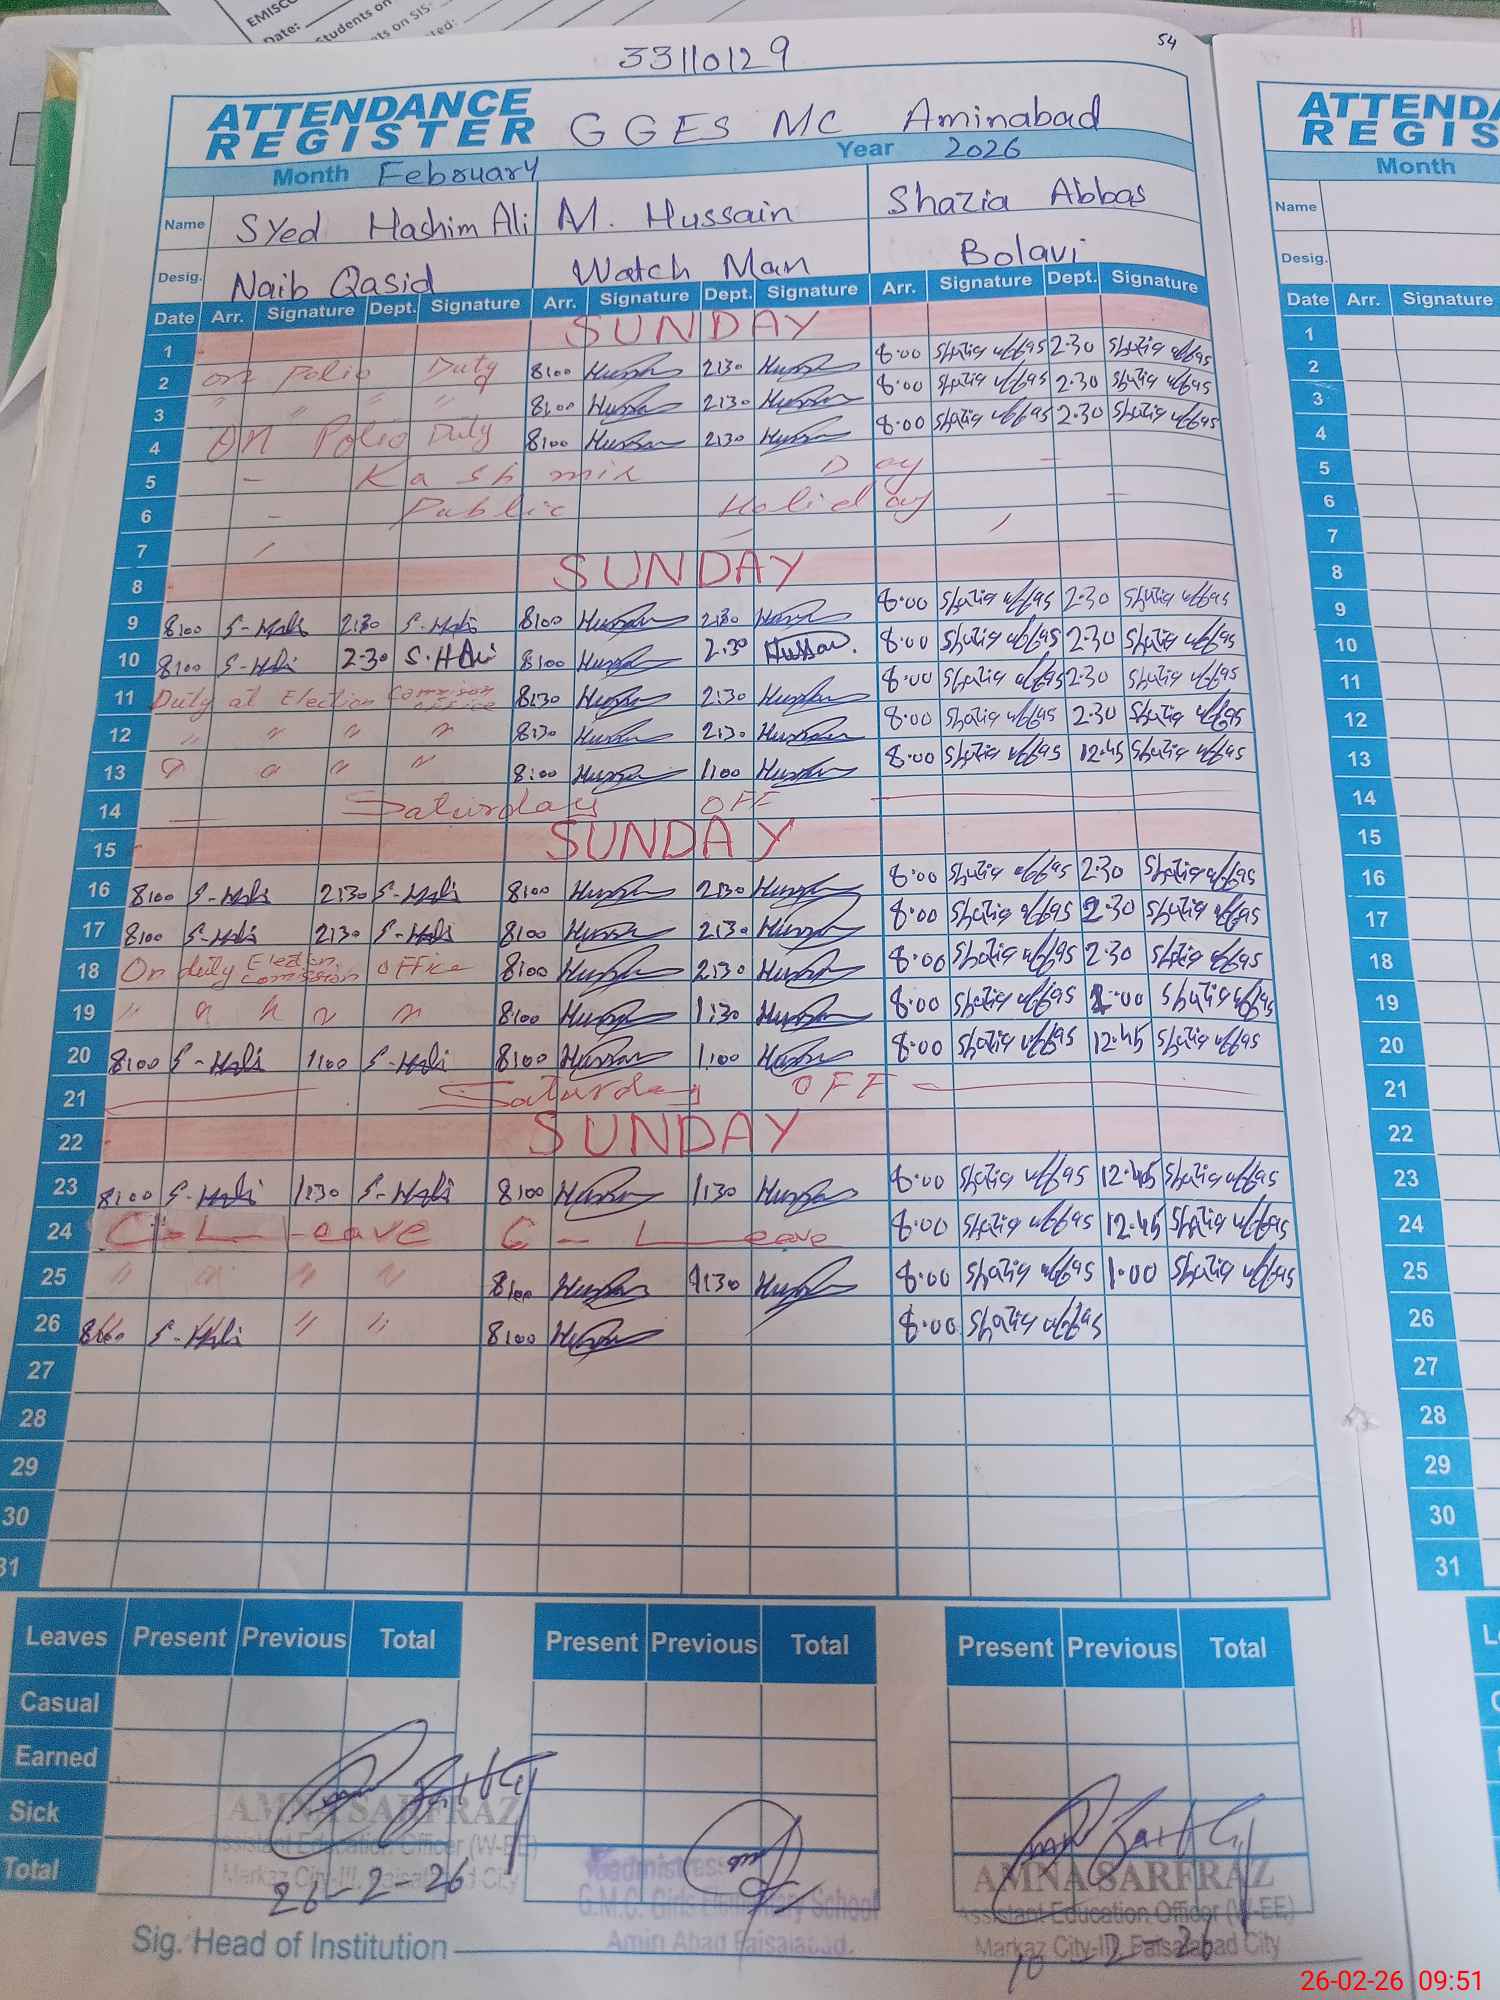 EMISCO
Date:
Students on
ts on SIS:
ted:
54
33110129
ATTENDANCE REGISTER GGES MC Aminabad
Month February Year 2026
Name Syed Hashim Ali M. Hussain Shazia Abbas
Desig. Naib Qasid Watch Man Bolavi
Date Arr. Signature Dept. Signature Arr. Signature Dept. Signature Arr. Signature Dept. Signature
1 SUNDAY
2 on Polio Duty 8:00 Hussain 2:30 Hussain 8:00 Shazia Abbas 2:30 Shazia Abbas
3 " " " " 8:00 Hussain 2:30 Hussain 8:00 Shazia Abbas 2:30 Shazia Abbas
4 On Polio Duty 8:00 Hussain 2:30 Hussain 8:00 Shazia Abbas 2:30 Shazia Abbas
5 - Kashmir Day -
6 - Public Holiday -
7
8 SUNDAY
9 8:00 S-H Ali 2:30 S-H Ali 8:00 Hussain 2:30 Hussain 8:00 Shazia Abbas 2:30 Shazia Abbas
10 8:00 S-H Ali 2:30 S.H Ali 8:00 Hussain 2:30 Hussain. 8:00 Shazia Abbas 2:30 Shazia Abbas
11 Duty at Election Commison office 8:30 Hussain 2:30 Hussain 8:00 Shazia Abbas 2:30 Shazia Abbas
12 " " " " 8:30 Hussain 2:30 Hussain 8:00 Shazia Abbas 2:30 Shazia Abbas
13 " " " " 8:00 Hussain 1:00 Hussain 8:00 Shazia Abbas 12:45 Shazia Abbas
14 Saturday OFF
15 SUNDAY
16 8:00 S-H Ali 2:30 S-H Ali 8:00 Hussain 2:30 Hussain 8:00 Shazia Abbas 2:30 Shazia Abbas
17 8:00 S-H Ali 2:30 S-H Ali 8:00 Hussain 2:30 Hussain 8:00 Shazia Abbas 2:30 Shazia Abbas
18 On duty Election comission office 8:00 Hussain 2:30 Hussain 8:00 Shazia Abbas 2:30 Shazia Abbas
19 " " " " " 8:00 Hussain 1:30 Hussain 8:00 Shazia Abbas 1:00 Shazia Abbas
20 8:00 S-H Ali 1:00 S-H Ali 8:00 Hussain 1:00 Hussain 8:00 Shazia Abbas 12:45 Shazia Abbas
21 Saturday OFF
22 SUNDAY
23 8:00 S-H Ali 1:30 S-H Ali 8:00 Hussain 1:30 Hussain 8:00 Shazia Abbas 12:45 Shazia Abbas
24 C-Leave C-Leave 8:00 Shazia Abbas 12:45 Shazia Abbas
25 " " " " 8:00 Hussain 1:30 Hussain 8:00 Shazia Abbas 1:00 Shazia Abbas
26 8:00 S-H Ali " " 8:00 Hussain 8:00 Shazia Abbas
27
28
29
30
31
Leaves Present Previous Total Present Previous Total Present Previous Total
Casual
Earned
Sick
Total
AMNA SARFRAZ
Assistant Education Officer (W-EE)
Markaz City-III, Faisalabad City
26-2-26
Headmistress
G.M.C. Girls Elementary School
Amin Abad Faisalabad.
AMNA SARFRAZ
Assistant Education Officer (W-EE)
Markaz City-III, Faisalabad City
10-2-26
Sig. Head of Institution
ATTENDA
REGIS
Month
Name
Desig.
Date Arr. Signature
1
2
3
4
5
6
7
8
9
10
11
12
13
14
15
16
17
18
19
20
21
22
23
24
25
26
27
28
29
30
31
26-02-26 09:51